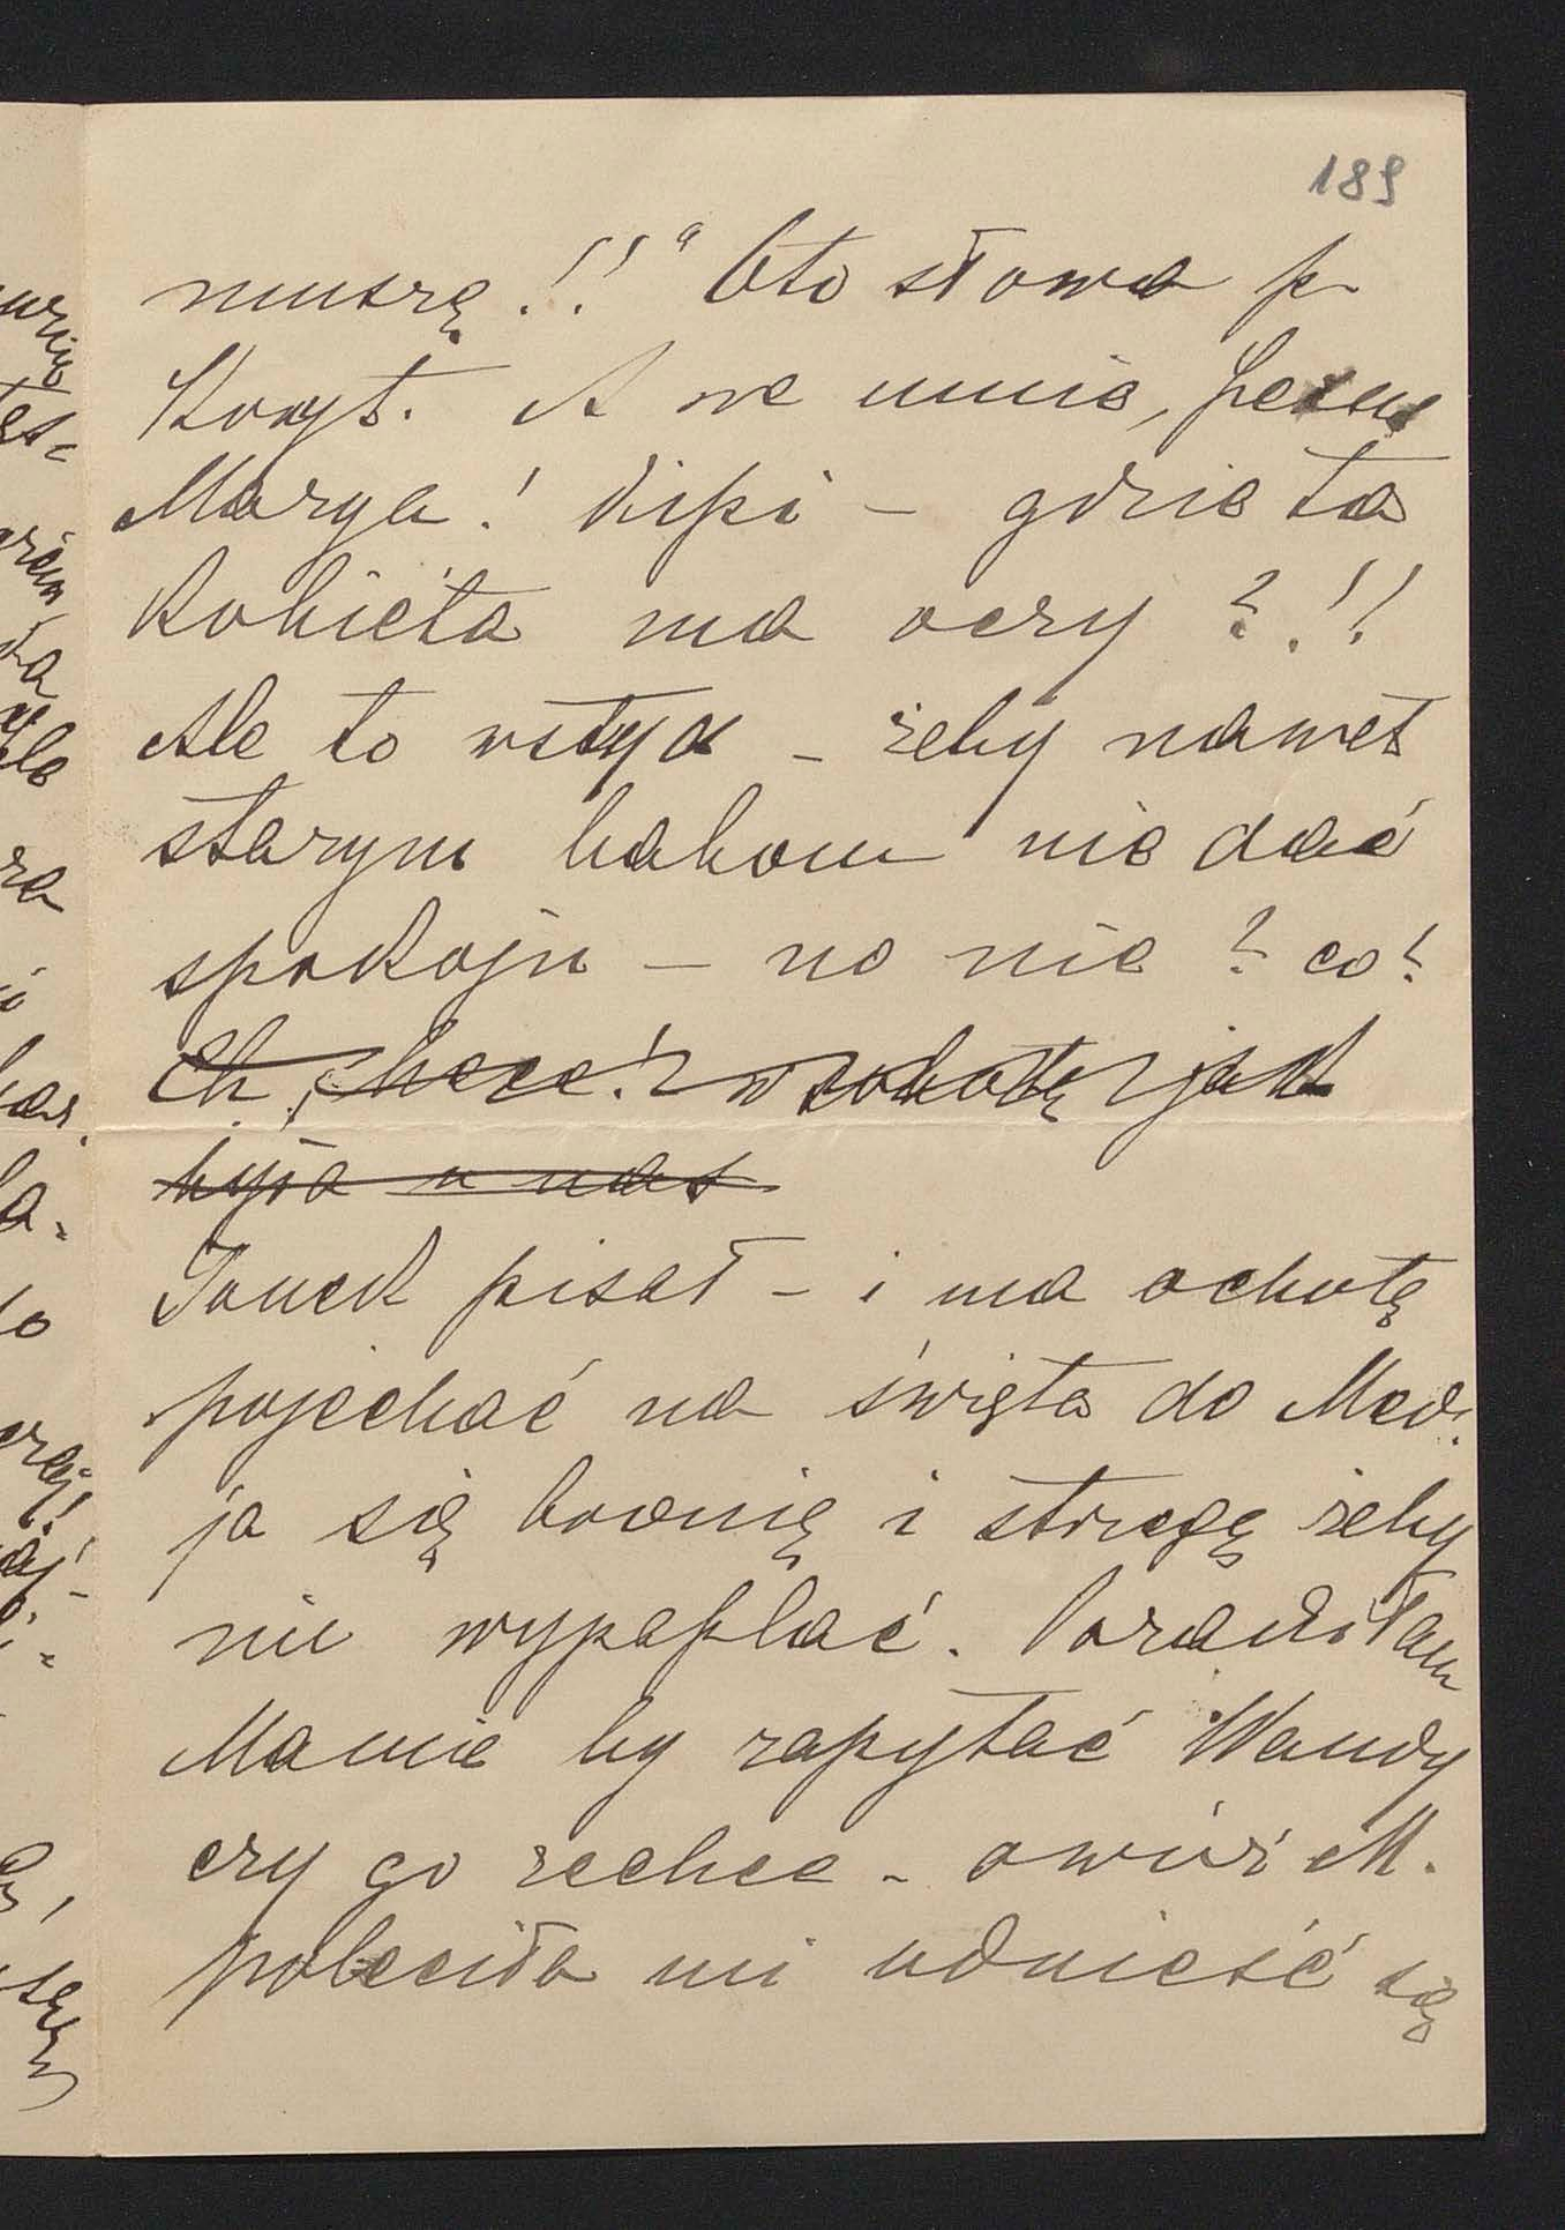 189
muszę!!" Oto słowa p.
Kuyt. A we mnie, Jezus
Marya! kipi – gdzie ta
kobieta ma oczy?!!
Ale to wstyd – żeby nawet
starym babom nie dać
spokoju – no nie? co?
w sobotę jak
była u nas
Janek pisał – i ma ochotę
pojechać na święta do Med.
ja się bronię i strzegę żeby
nie wypaplać. Poradziłam
Mamie by zapytać Wandy
czy go zechce – owóż M.
poleciła mi udnieść się